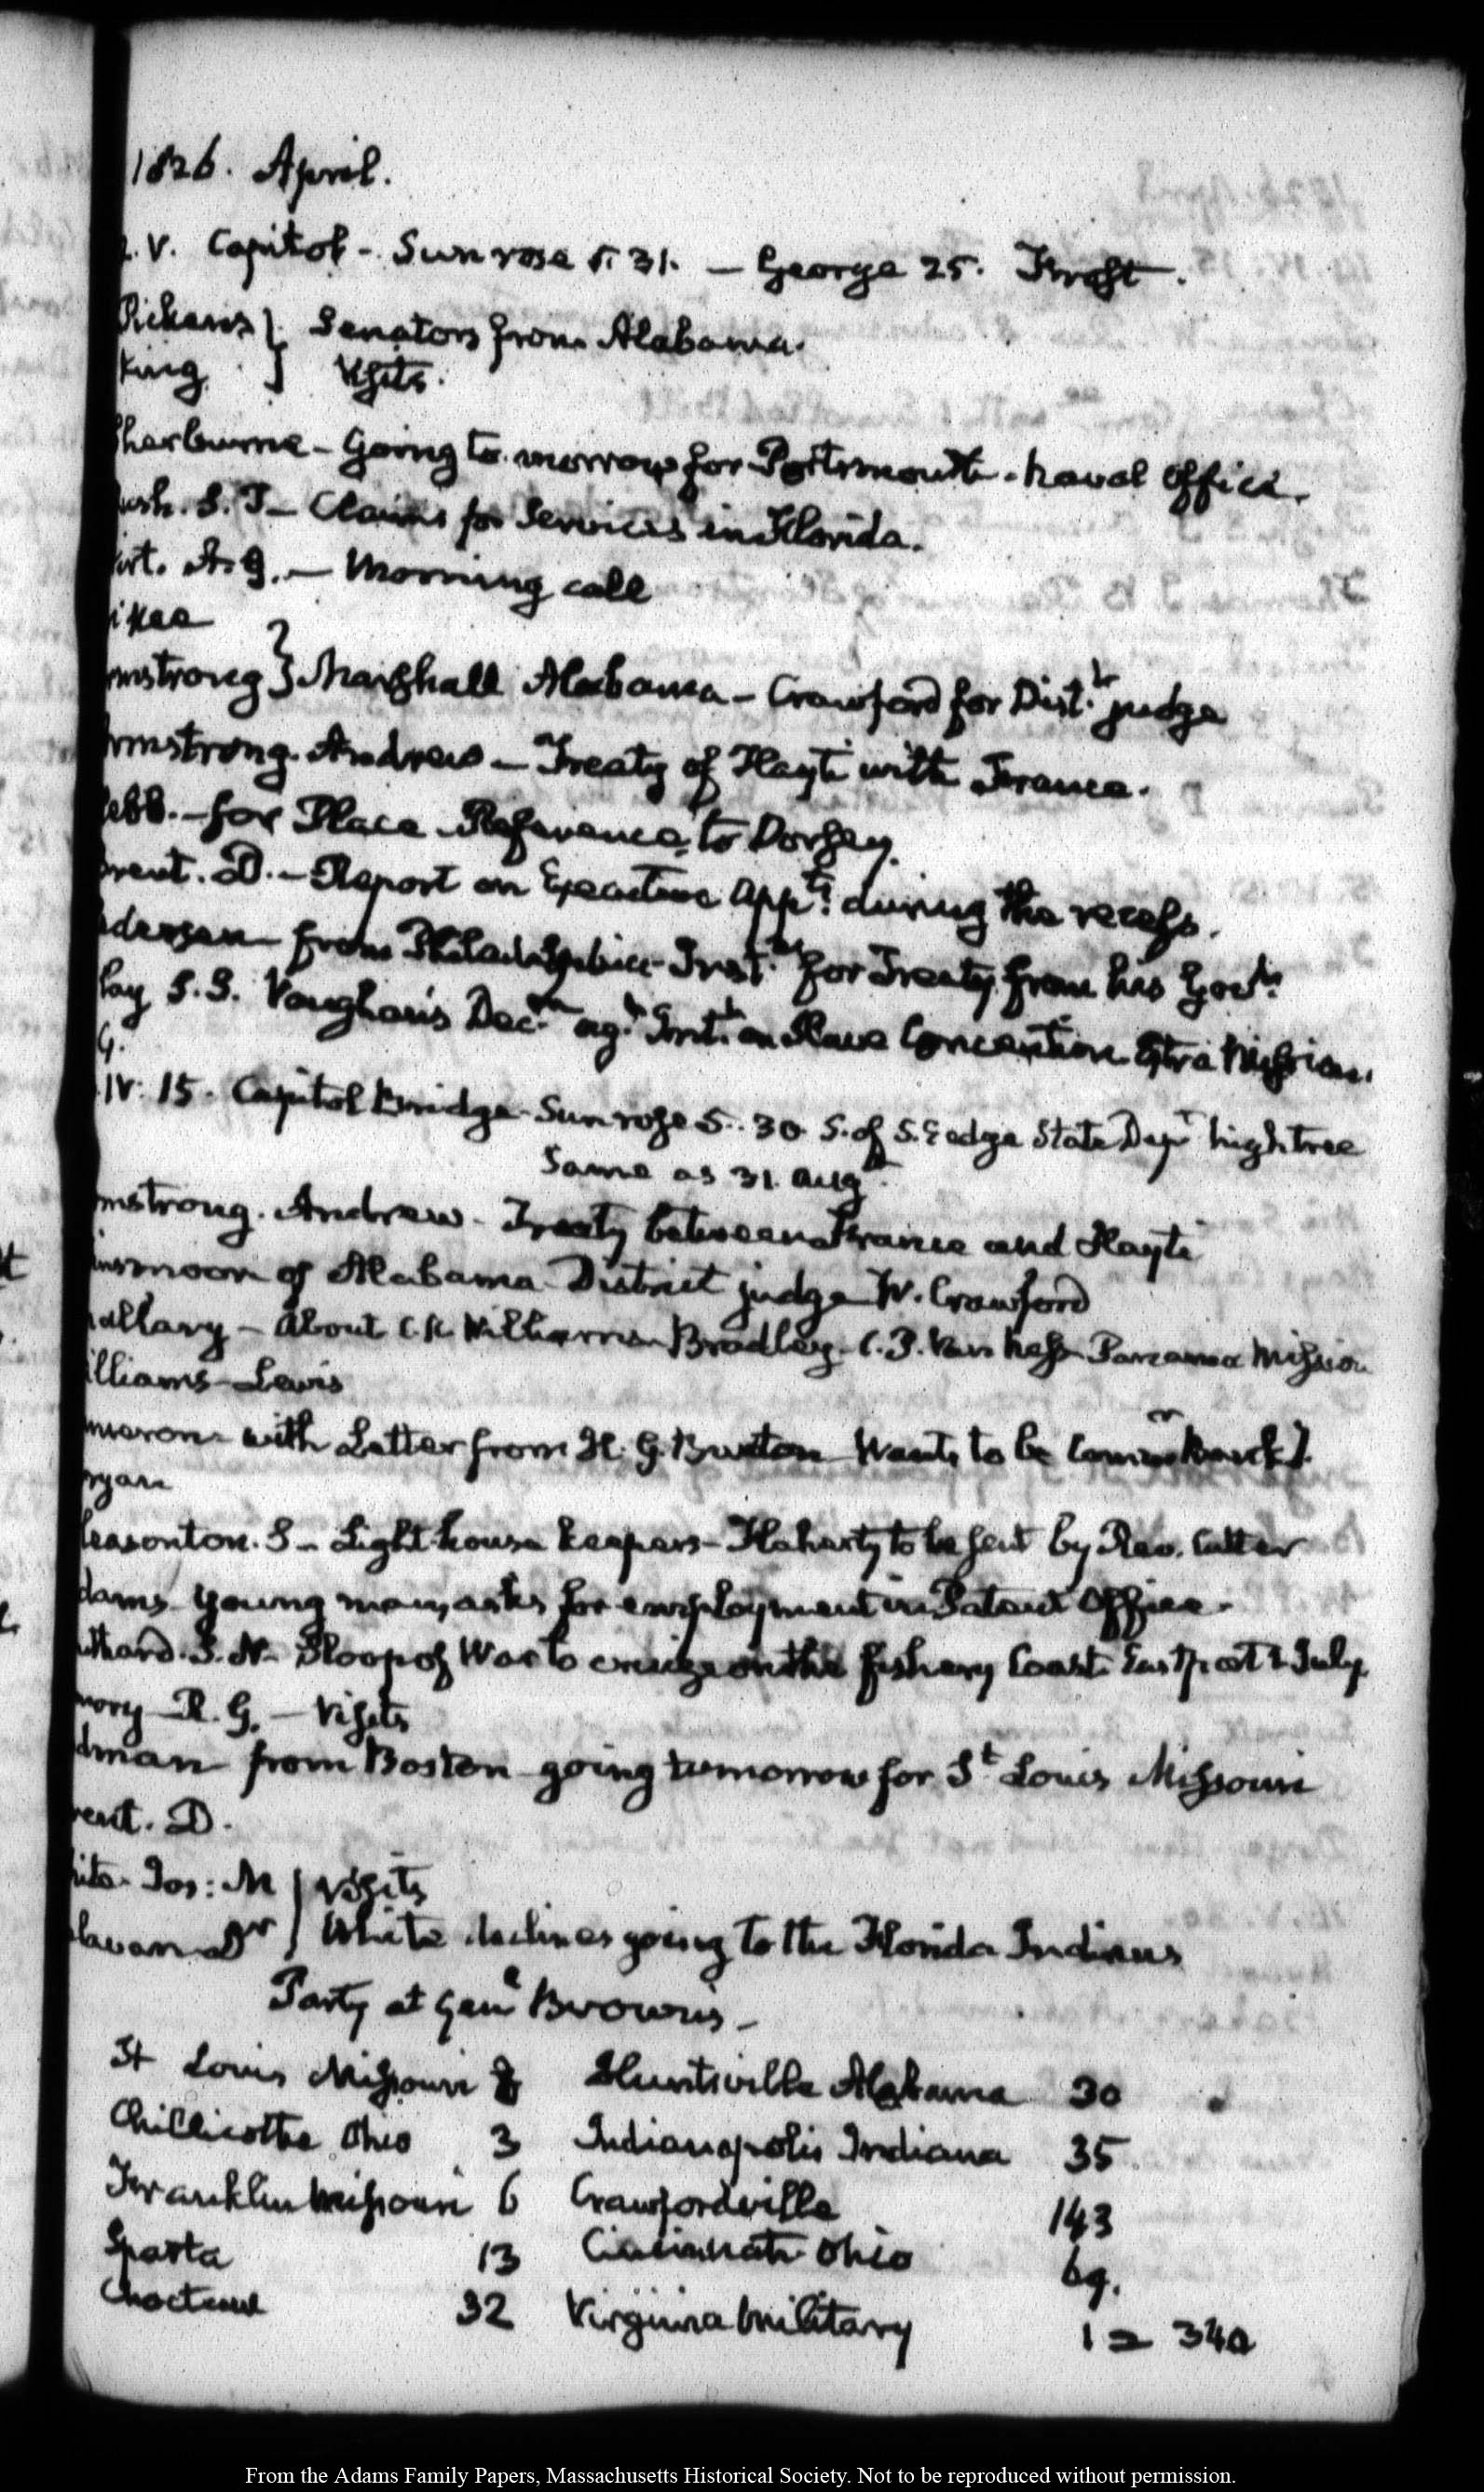 1826. April.
. V. Capitol - Sun rose 5. 31. — George 25. Frost.
Pickens } Senators from Alabama.
King. } Visits.
herburne - Going to morrow for Portsmouth - Naval Office.
ush. S. T - Claims for Services in Florida.
irt. A. G. — Morning call
ikea
rmstrong } Marshall Alabama - Crawford for Distt. judge
rmstrong. Andrew - Treaty of Hayti with France.
ebb. - for Place - Reference to Dorsey.
rent. D. - Report on Executive appts. during the recess.
dersen from Philadelphia - Inst.ns for Treaty from his Govt.
lay S. S. Vaughan's Decn. agt. on Slave Convention Extra Mission.
G.
IV: 15. Capitol Bridge - Sun rose 5. 30. S. of S. E edge State Dept high tree
Same as 31. Augt.
mstrong. Andrew - Treaty between France and Hayti
insmoor of Alabama District judge W. Crawford
allary - About C. K. Williams - Bradley - C. P. Van Ness - Panama Mission
illiams - Lewis
meron - with Letter from H. G. Burton Wants to be
ryan
leasonton. S - Light-house keepers - Flaharty to be sent by Rev. Cutter
dams - young man, asks for employment in Patent Office.
uthard. S. N - Sloop of War to cruize on the fishery Coast. Eastport 1 July
mory - R. G. - Visits
dman from Boston - going tomorrow for St Louis Missouri
rent. D.
hite. Jos: M } Visits
elavan Dr } White declines going to the Florida Indians
Party at Genl Brown's -
St Louis Missouri 8 Huntsville Alabama 30
Chillicothe Ohio 3 Indianapolis Indiana 35
Franklin Missouri 6 Crawfordville 143
Sparta 13 Cincinnati Ohio 69.
Choctaw 32 Virginia Military 1 = 340
From the Adams Family Papers, Massachusetts Historical Society. Not to be reproduced without permission.